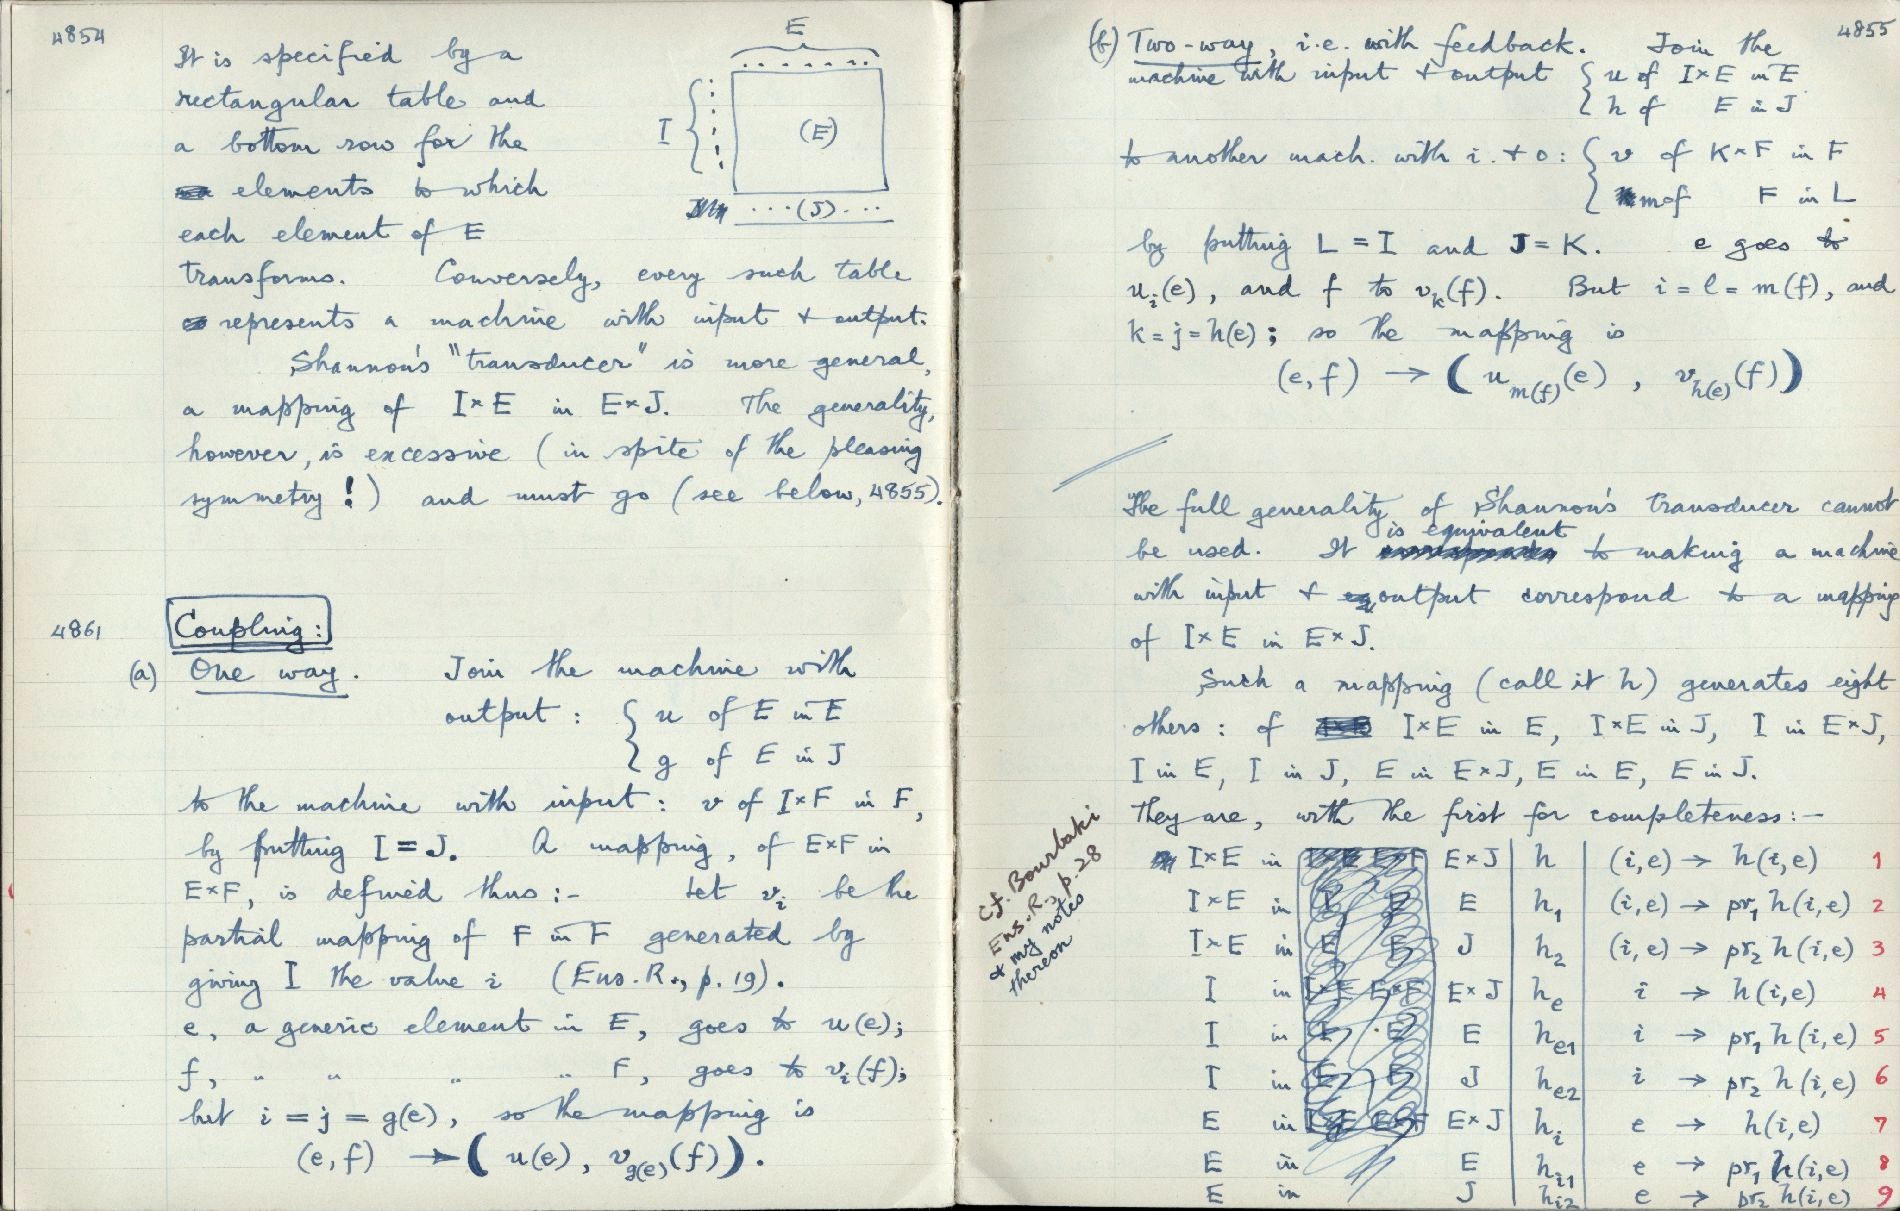 4854
It is specified by a
rectangular table and
a bottom row for the
elements to which
each element of E
transforms. Conversely, every such table
represents a machine with input + output.
E
I
(E)
...(J)...
Shannon's "transducer" is more general,
a mapping of I×E in E×J. The generality,
however, is excessive (in spite of the pleasing
symmetry!) and must go (see below, 4855).
4861
Coupling:
(a) One way. Join the machine with
output: { u of E in E
g of E in J
to the machine with input: v of I×F in F,
by putting I = J. A mapping, of E×F in
E×F, is defined thus:- Let vᵢ be the
partial mapping of F in F generated by
giving I the value i (Ens. R., p. 19).
e, a generic element in E, goes to u(e);
f, " " " " F, goes to vᵢ(f);
but i = j = g(e), so the mapping is
(e, f) → ( u(e), v_g(e)(f) ).
4855
(b) Two-way, i.e. with feedback. Join the
machine with input + output { u of I×E in E
h of E in J
to another mach. with i. + o: { v of K×F in F
m of F in L
by putting L = I and J = K. e goes to
uᵢ(e), and f to vₖ(f). But i = l = m(f), and
k = j = h(e); so the mapping is
(e, f) → ( u_m(f)(e), v_h(e)(f) )
The full generality of Shannon's transducer cannot
be used. It is equivalent to making a machine
with input + output correspond to a mapping
of I×E in E×J.
Such a mapping (call it h) generates eight
others: of I×E in E, I×E in J, I in E×J,
I in E, I in J, E in E×J, E in E, E in J.
They are, with the first for completeness:-
cf. Bourbaki
Ens. R., p. 28
+ my notes
thereon
I×E in E×J h (i,e) → h(i,e) 1
I×E in E h₁ (i,e) → pr₁ h(i,e) 2
I×E in J h₂ (i,e) → pr₂ h(i,e) 3
I in E×J hₑ i → h(i,e) 4
I in E hₑ₁ i → pr₁ h(i,e) 5
I in J hₑ₂ i → pr₂ h(i,e) 6
E in E×J hᵢ e → h(i,e) 7
E in E hᵢ₁ e → pr₁ h(i,e) 8
E in J hᵢ₂ e → pr₂ h(i,e) 9